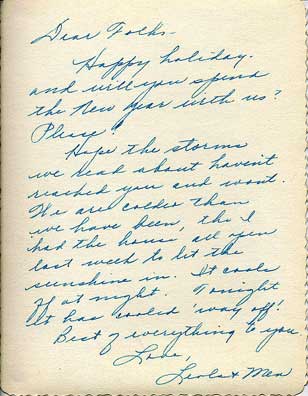 Dear Folks -
Happy holiday.
and will you spend
the New Year with us?
Please!
Hope the storms
we read about havent
reached you and wont.
We are colder than
we have been, tho I
had the house all open
last week to let the
sunshine in. It cools
off at night. Tonight
it has cooled 'way off!
Best of everything to you
Love,
Leola + Men